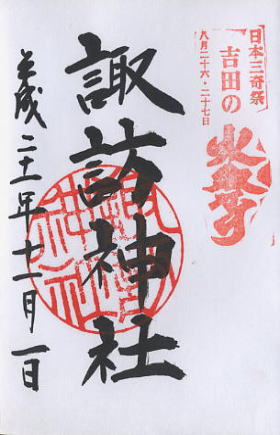 日本三奇祭
吉田の
火祭
八月二十六・二十七日
諏訪神社
平成二十一年十一月一日